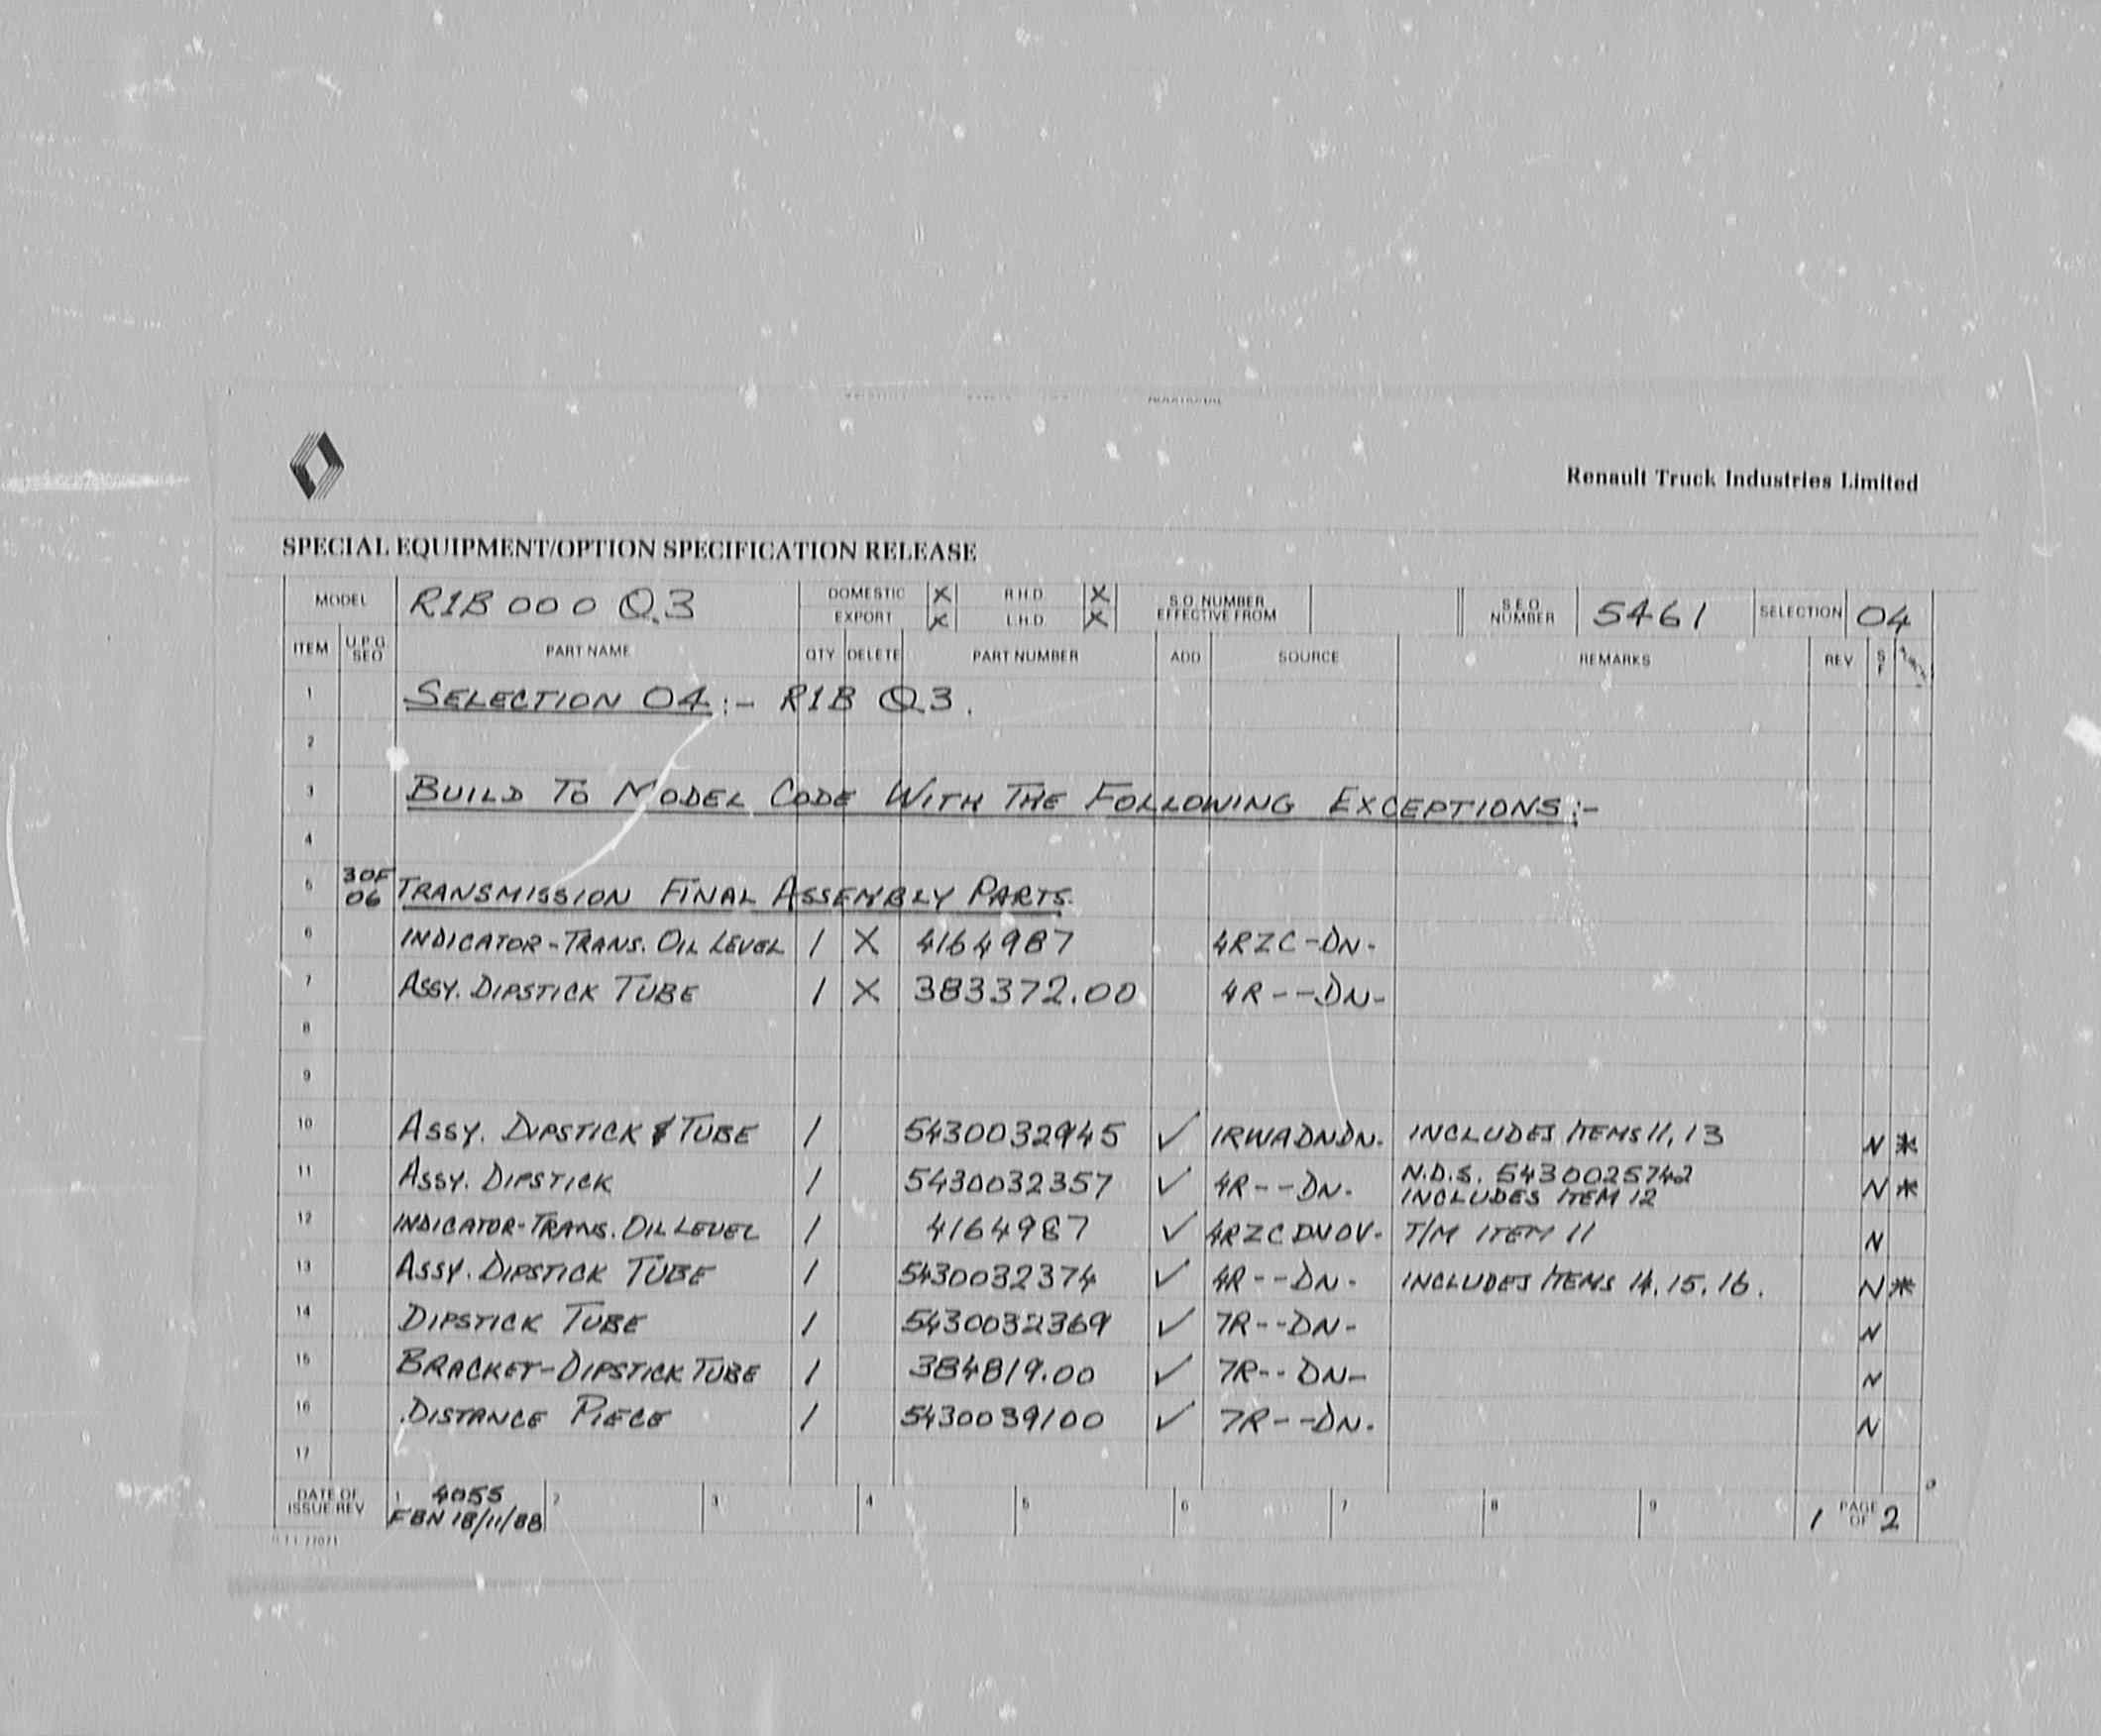 Renault Truck Industries Limited
SPECIAL EQUIPMENT/OPTION SPECIFICATION RELEASE
MODEL R1B 000 Q.3 DOMESTIC X R.H.D. X S.O. NUMBER EFFECTIVE FROM S.E.O. NUMBER 5461 SELECTION 04
EXPORT X L.H.D. X
ITEM U.P.G. SEQ PART NAME QTY DELETE PART NUMBER ADD SOURCE REMARKS REV S F
1 SELECTION 04:- R1B Q.3.
2
3 BUILD TO MODEL CODE WITH THE FOLLOWING EXCEPTIONS:-
4
5 30F 06 TRANSMISSION FINAL ASSEMBLY PARTS.
6 INDICATOR-TRANS. OIL LEVEL 1 X 4164987 4RZC-DN-
7 ASSY. DIPSTICK TUBE 1 X 383372.00 4R--DN-
8
9
10 ASSY. DIPSTICK & TUBE 1 5430032945 ✓ 1RWADNDN. INCLUDES ITEMS 11, 13 N *
11 ASSY. DIPSTICK 1 5430032357 ✓ 4R--DN. N.D.S. 5430025742 INCLUDES ITEM 12 N *
12 INDICATOR-TRANS. OIL LEVEL 1 4164987 ✓ 4RZCDNOV- T/M ITEM 11 N
13 ASSY. DIPSTICK TUBE 1 5430032374 ✓ 4R--DN- INCLUDES ITEMS 14, 15, 16. N *
14 DIPSTICK TUBE 1 5430032369 ✓ 7R--DN- N
15 BRACKET-DIPSTICK TUBE 1 384819.00 ✓ 7R--DN- N
16 DISTANCE PIECE 1 5430039100 ✓ 7R--DN. N
17
DATE OF ISSUE REV 1 4055 FBN 18/11/88 2 3 4 5 6 7 8 9 1 PAGE OF 2